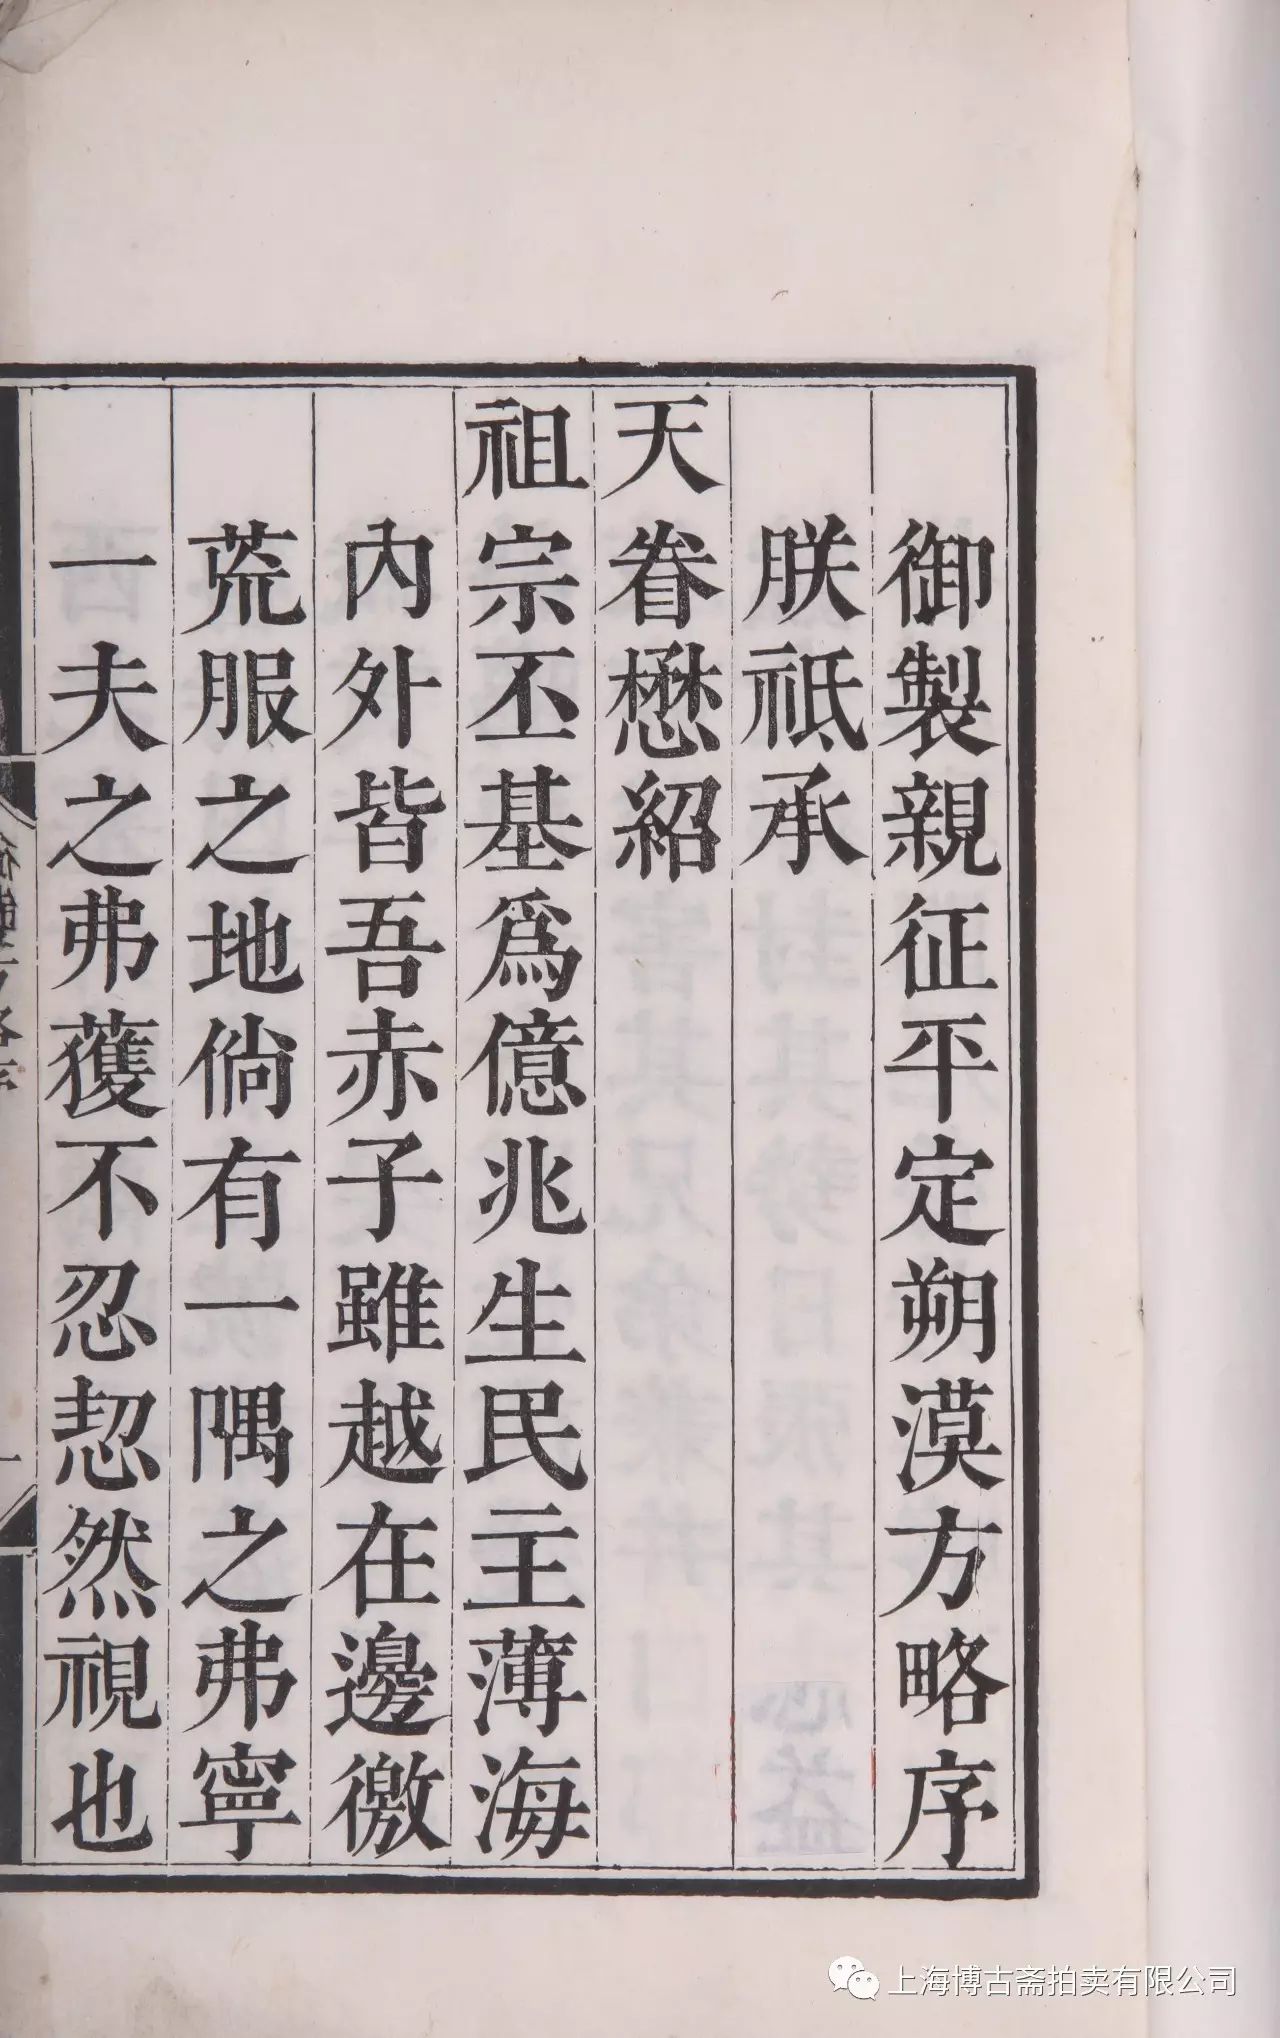 御製親征平定朔漠方略序
朕祗承
天眷懋紹
祖宗丕基為億兆生民主薄海
內外皆吾赤子雖越在邊徼
荒服之地倘有一隅之弗寧
一夫之弗獲不忍恝然視也
上海博古斋拍卖有限公司